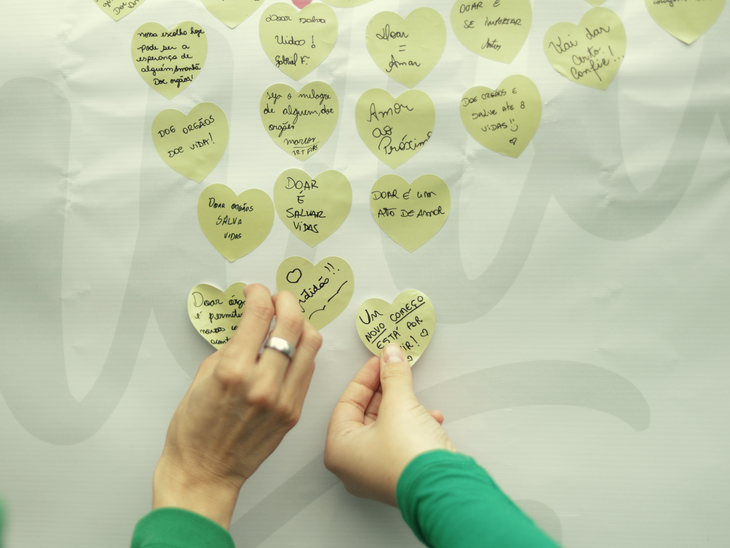 Doar salva
Vidas!
Gabriel F.
Doar
=
Amar
DOAR É
SE IMPORTAR
Vai dar
Certo.
Confie...!
nossa escolha hoje
pode ser a
esperança de
alguém amanhã
Doe orgãos!
Seja o milagre
de alguém, doe
orgãos
Amor
ao
Próximo
DOE ORGÃOS E
SALVE ATÉ 8
VIDAS
DOE ORGÃOS
DOE VIDA!
DOAR ORGÃOS
SALVA
VIDAS
DOAR
É
SALVAR
VIDAS
DOAR É UM
ATO DE AMOR
Doar
é
Gratidão!!
UM
NOVO COMEÇO
ESTÁ POR